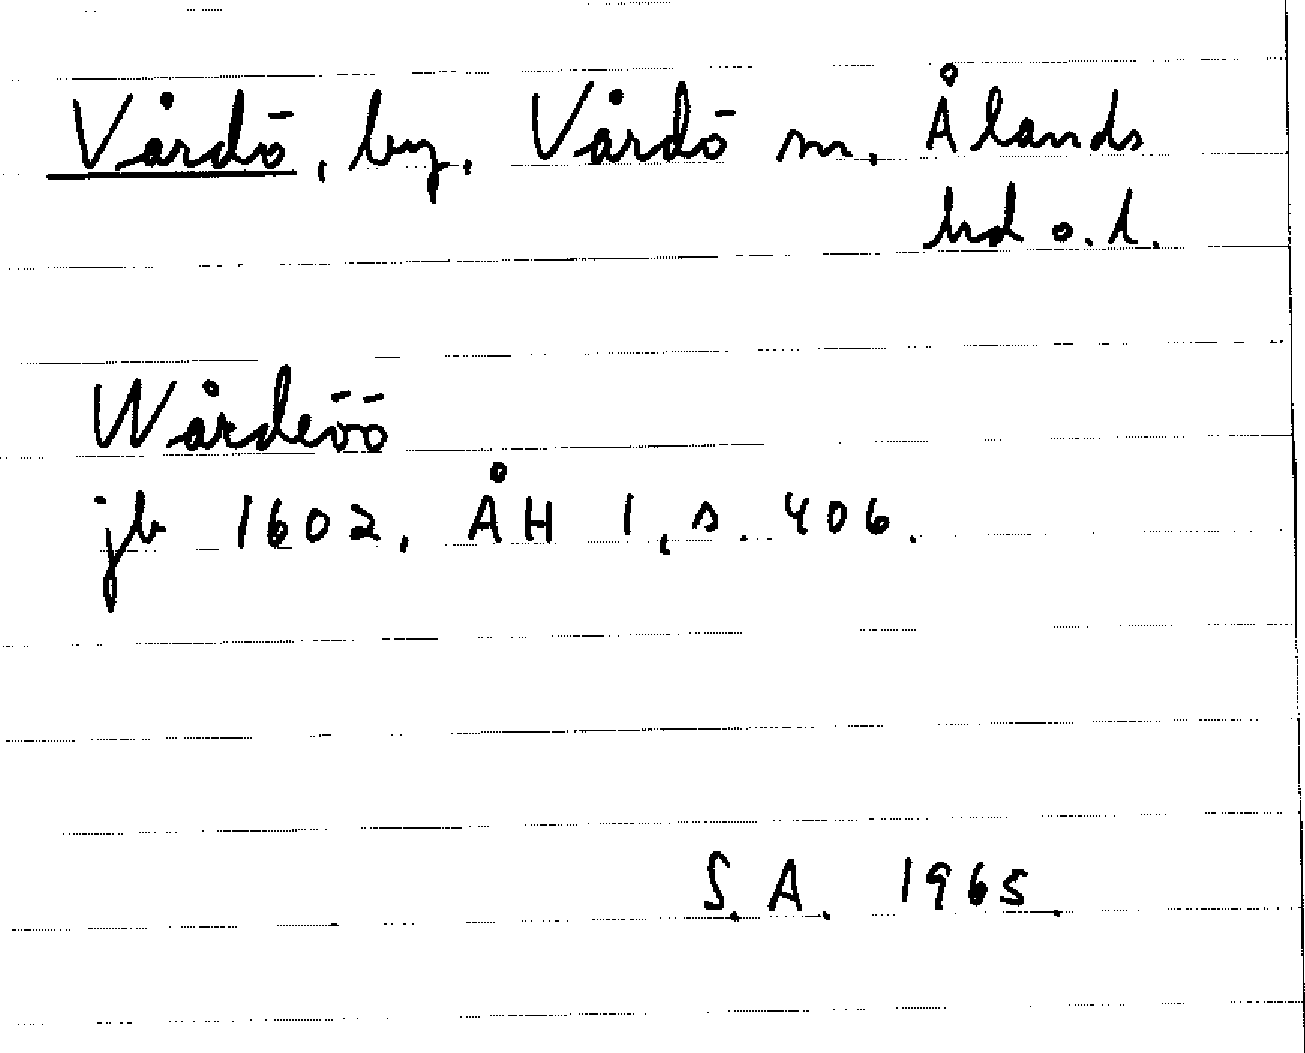 Vårdö, by, Vårdö sn, Ålands
hd o. l.
Wårdeöö
jb 1602, ÅH 1, s. 406.
S. A. 1965.